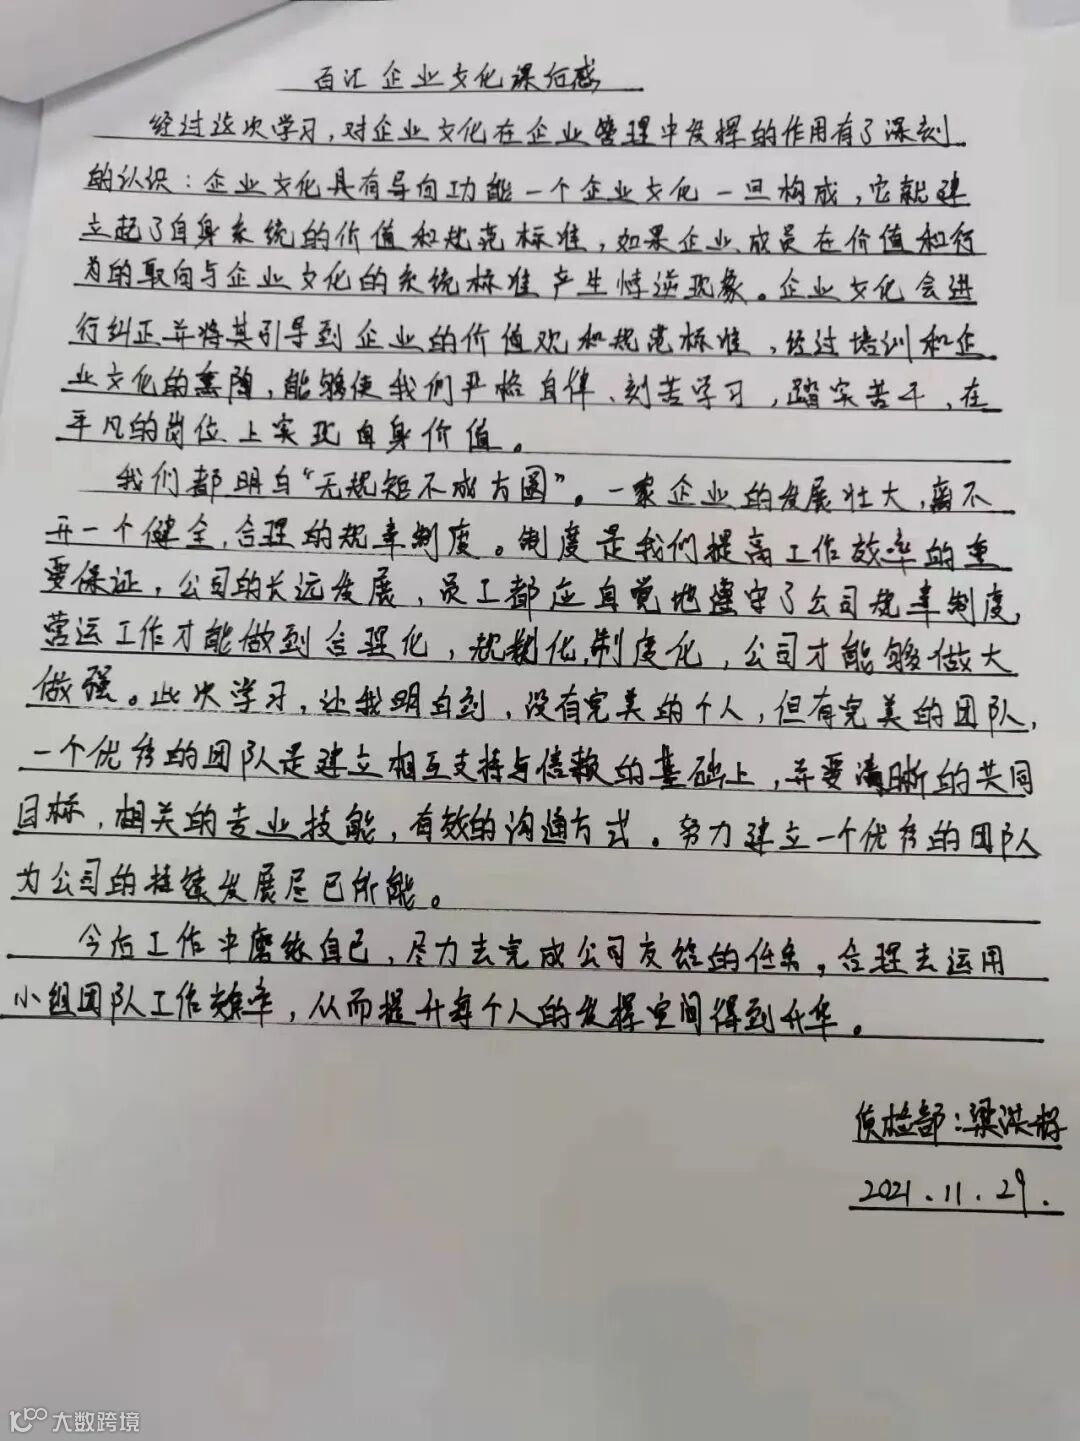 百汇企业文化课后感
经过这次学习,对企业文化在企业管理中发挥的作用有了深刻
的认识:企业文化具有导向功能一个企业文化一旦构成,它就建
立起了自身系统的价值和规范标准,如果企业成员在价值和行
为的取向与企业文化的系统标准产生悖逆现象。企业文化会进
行纠正并将其引导到企业的价值观和规范标准,经过培训和企
业文化的熏陶,能够使我们严格自律、刻苦学习,踏实苦干,在
平凡的岗位上实现自身价值。
我们都明白“无规矩不成方圆”。一家企业的发展壮大,离不
开一个健全,合理的规章制度。制度是我们提高工作效率的重
要保证,公司的长远发展,员工都应自觉地遵守了公司规章制度,
营运工作才能做到合理化,规划化,制度化,公司才能够做大
做强。此次学习,让我明白到,没有完美的个人,但有完美的团队,
一个优秀的团队是建立相互支持与信赖的基础上,并要清晰的共同
目标,相关的专业技能,有效的沟通方式。努力建立一个优秀的团队
为公司的持续发展尽己所能。
今后工作中磨练自己,尽力去完成公司交给的任务,合理去运用
小组团队工作效率,从而提升每个人的发挥空间得到升华。
质检部:梁洪
2021.11.29.
大数跨境